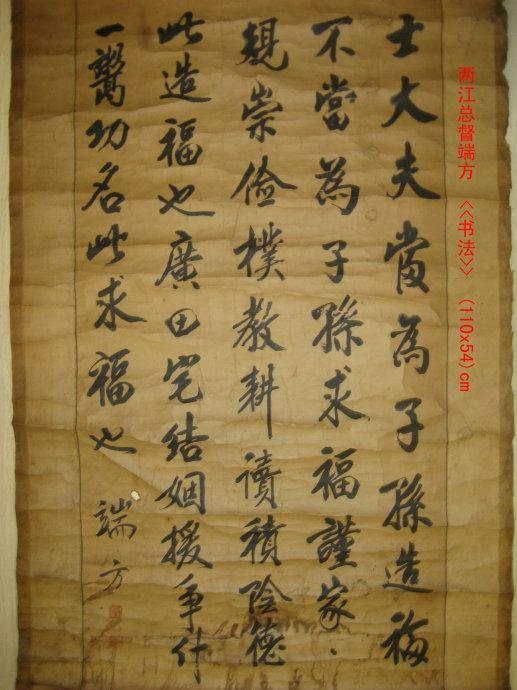 两江总督端方 <<书法>> (110x54)cm
士大夫當為子孫造福
不當為子孫求福謹家、
規崇儉樸教耕讀積陰德
此造福也廣田宅結姻援爭什
一鬻功名此求福也 端方